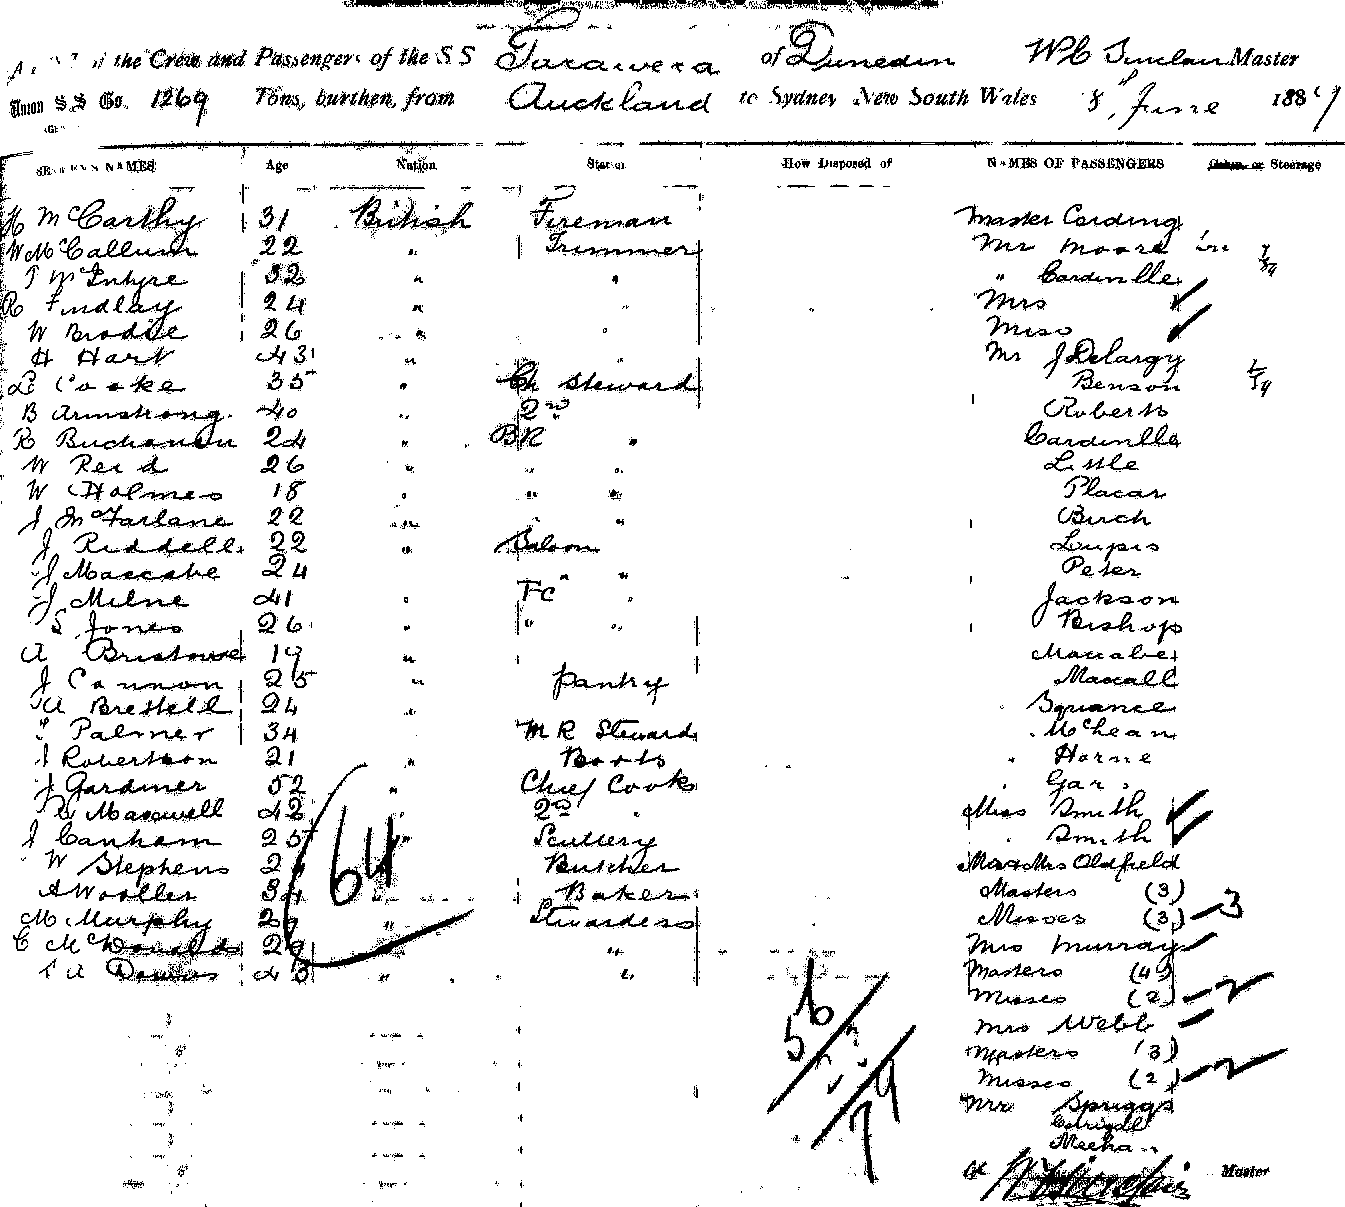 of the Crew and Passengers of the S S Tarawera of Dunedin W C Sinclair Master
Union S.S Co. 1269 Tons, burthen, from Auckland to Sydney New South Wales 8, June 1889
NAMES Age Nation Station How Disposed of NAMES OF PASSENGERS Cabin or Steerage
McCarthy 31 British Fireman Master Carding
W McCallum 22 " Trimmer Mr Moore
T McIntyre 32 " " " Cardinlle
R Findlay 24 " " Mrs
W Brodie 26 " " Miss
H Hart 43 " Mr J Delargy
Cooke 35 " Ch Steward Benson
B Armstrong 40 " 2nd Roberts
R Buchanan 24 " BR " Cardinlle
W Reid 26 " " " Little
W Holmes 18 " " " Placar
J McFarlane 22 " " Birch
J Riddell 22 " Saloon Lupis
J Maccabe 24 " " Peter
J Milne 41 " FC " Jackson
S Jones 26 " " " Bishop
A Bristowe 19 " Maccabe
J Cannon 25 " Pantry Mascall
A Brettell 24 " Squance
Palmer 34 M R Steward McLean
J Robertson 21 " Boots Horne
J Gardiner 52 " Chief Cook
Maxwell 42 2nd " Miss Smith
J Canham 25 " Scullery " Smith
W Stephens Butcher Mr & Mrs Oldfield
A Wooller 34 Baker Masters (3)
M Murphy 29 " Stewardess Misses (3) 3
C McDonald 29 " Mrs Murray
A 43 " " Masters (4)
64
Misses (2) 2
56
Mrs Webb
Masters (3)
79
Misses (2) 2
Spriggs
Meeha
W C Sinclair Master